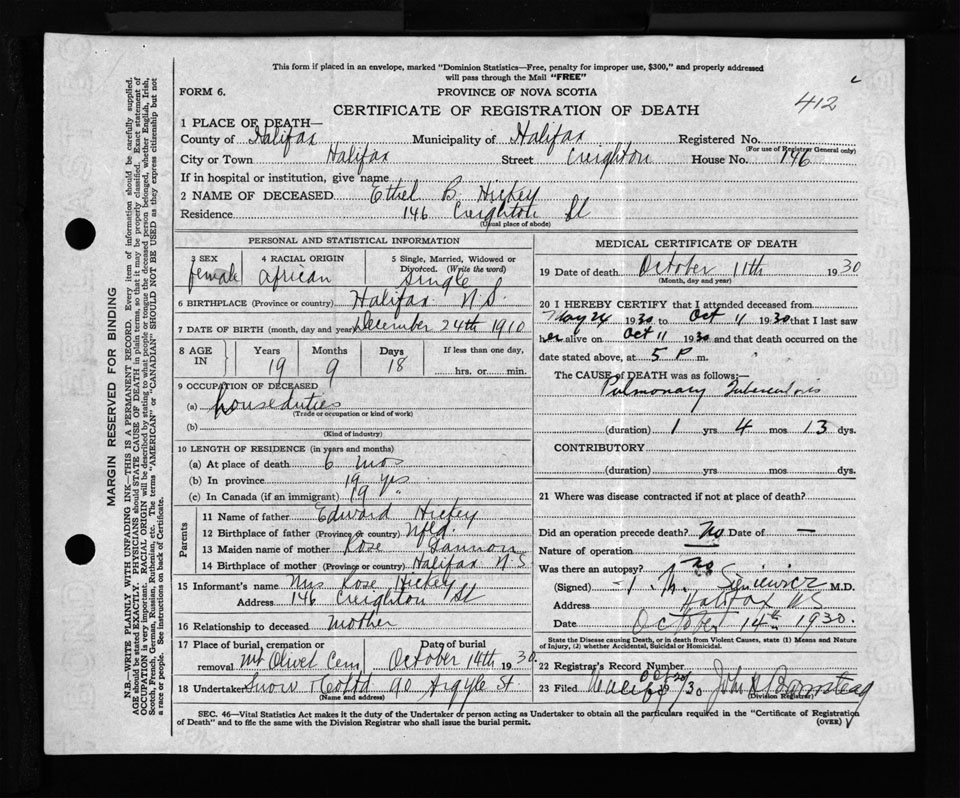 This form if placed in an envelope, marked "Dominion Statistics—Free, penalty for improper use, $300," and properly addressed
will pass through the Mail "FREE"
FORM 6.
PROVINCE OF NOVA SCOTIA
412
CERTIFICATE OF REGISTRATION OF DEATH
1 PLACE OF DEATH—
County of Halifax Municipality of Halifax Registered No.
(For use of Registrar General only)
City or Town Halifax Street Creighton House No. 146
If in hospital or institution, give name
2 NAME OF DECEASED Ethel B. Hickey
Residence 146 Creighton St
(Usual place of abode)
PERSONAL AND STATISTICAL INFORMATION
3 SEX 4 RACIAL ORIGIN 5 Single, Married, Widowed or
Divorced. (Write the word)
female african single
6 BIRTHPLACE (Province or country) Halifax N.S.
7 DATE OF BIRTH (month, day and year) December 24th 1910
8 AGE IN Years Months Days If less than one day,
19 9 18 hrs. or min.
9 OCCUPATION OF DECEASED
(a) house duties
(Trade or occupation or kind of work)
(b)
(Kind of industry)
10 LENGTH OF RESIDENCE (in years and months)
(a) At place of death 6 mos
(b) In province 19 yrs.
(c) In Canada (if an immigrant) 19 "
Parents
11 Name of father Edward Hickey
12 Birthplace of father (Province or country) Nfld
13 Maiden name of mother Rose Gannon
14 Birthplace of mother (Province or country) Halifax N.S
15 Informant's name Mrs Rose Hickey
Address 146 Creighton St
16 Relationship to deceased mother
17 Place of burial, cremation or Date of burial
removal Mt Olivet Cem October 14th 1930
18 Undertaker Snow & Co Ltd 90 Argyle St
(Name and address)
MEDICAL CERTIFICATE OF DEATH
19 Date of death October 11th 1930
(Month, day and year)
20 I HEREBY CERTIFY that I attended deceased from
May 24 1930 to Oct 11 1930 that I last saw
her alive on Oct 11 1930 and that death occurred on the
date stated above, at 5 P m.
The CAUSE of DEATH was as follows:—
Pulmonary Tuberculosis
(duration) 1 yrs 4 mos 13 dys.
CONTRIBUTORY
(duration) yrs mos dys.
21 Where was disease contracted if not at place of death?
Did an operation precede death? No Date of —
Nature of operation
Was there an autopsy? no
(Signed) M. M.D.
Address Halifax N.S.
Date October 14th 1930.
State the Disease causing Death, or in death from Violent Causes, state (1) Means and Nature
of Injury, (2) whether Accidental, Suicidal or Homicidal.
22 Registrar's Record Number
23 Filed /30 John
(Division Registrar)
SEC. 46—Vital Statistics Act makes it the duty of the Undertaker or person acting as Undertaker to obtain all the particulars required in the "Certificate of Registration
of Death" and to file the same with the Division Registrar who shall issue the burial permit.
(OVER)
MARGIN RESERVED FOR BINDING
N.B.—WRITE PLAINLY WITH UNFADING INK—THIS IS A PERMANENT RECORD. Every item of information should be carefully supplied.
AGE should be stated EXACTLY. PHYSICIANS should STATE CAUSE OF DEATH in plain terms, so that it may be properly classified. Exact statement of
OCCUPATION is very important. RACIAL ORIGIN will be described by stating to what people or tongue the deceased person belonged, whether English, Irish,
Scotch, French, German, Russian, Ruthenian, etc. The terms "AMERICAN" or "CANADIAN" SHOULD NOT BE USED as they express citizenship but not
a race or people. See instructions on back of Certificate.